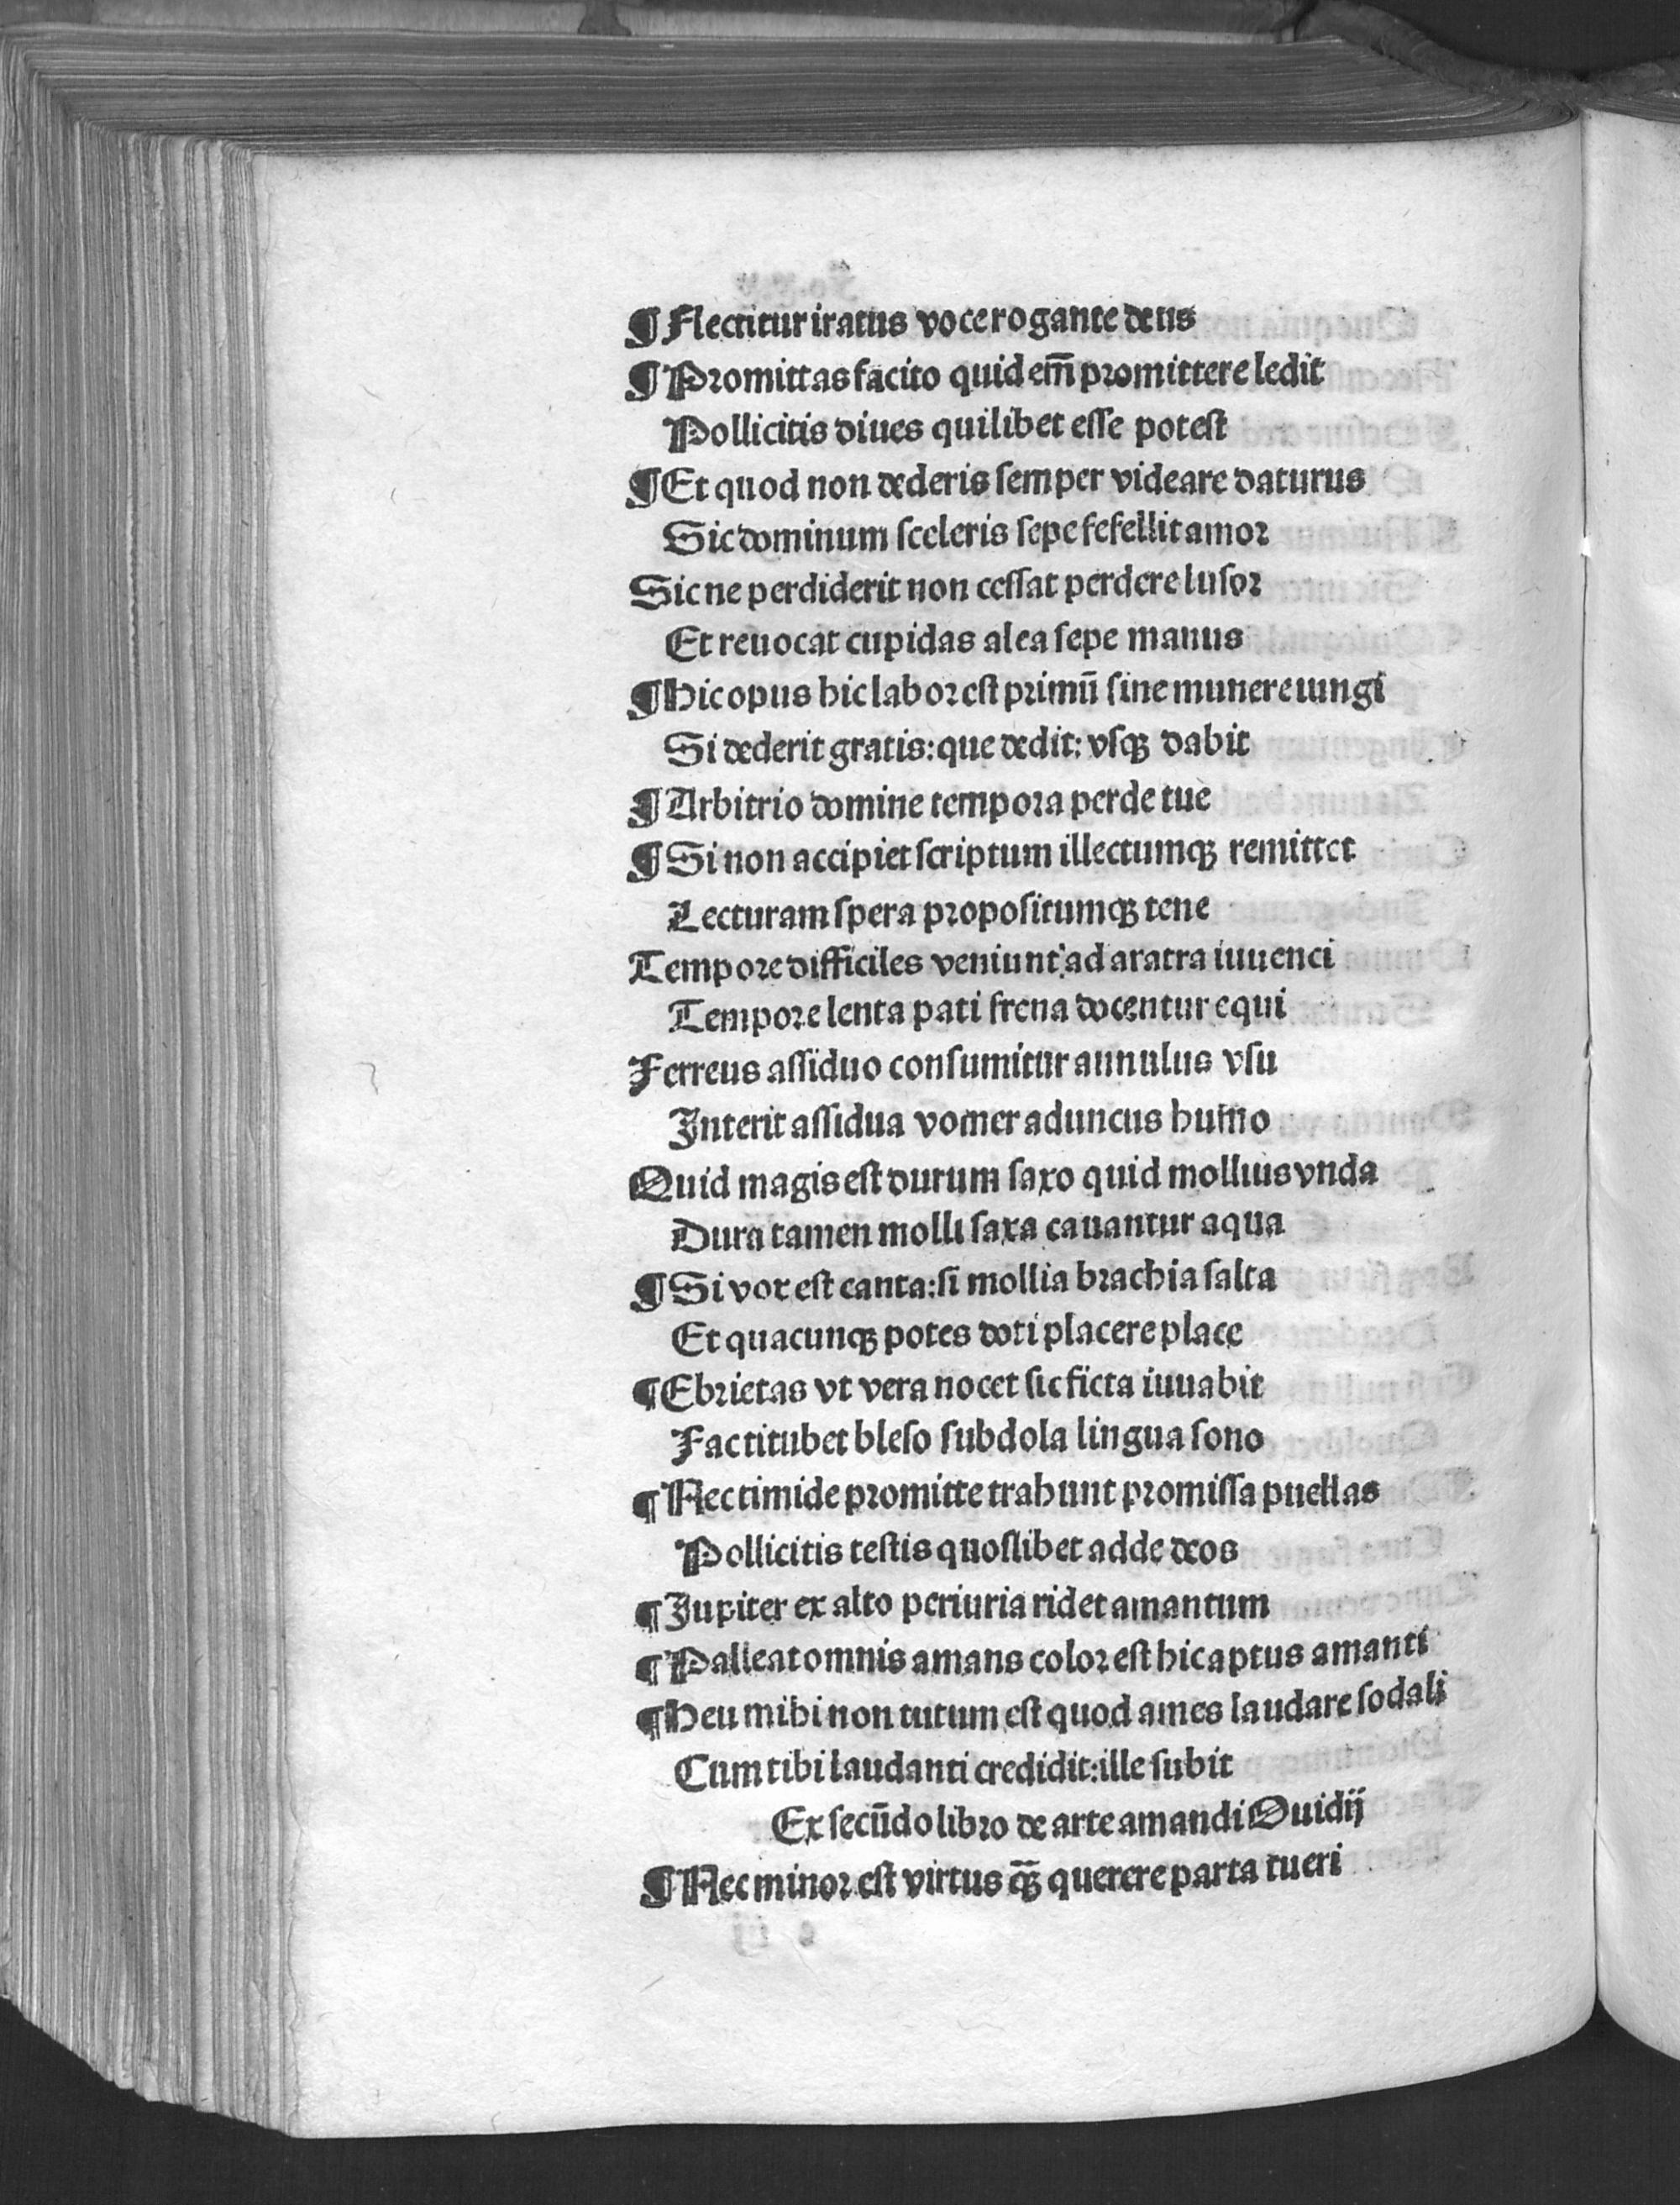 ¶ Flectitur iratus voce rogante deus
¶ Promittas facito quid em̄ promittere ledit
Pollicitis diues quilibet esse potest
¶ Et quod non dederis semper videare daturus
Sic dominum sceleris sepe fefellit amor
Sic ne perdiderit non cessat perdere lusor
Et reuocat cupidas alea sepe manus
¶ Hic opus hic labor est primū sine munere iungi
Si dederit gratis: que dedit: vsqꝫ dabit
¶ Arbitrio domine tempora perde tue
¶ Si non accipiet scriptum illectumqꝫ remittet
Lecturam spera propositumqꝫ tene
Tempore difficiles veniunt ad aratra iuuenci
Tempore lenta pati frena docentur equi
Ferreus assiduo consumitur annulus vsu
Interit assidua vomer aduncus humo
Quid magis est durum saxo quid mollius vnda
Dura tamen molli saxa cauantur aqua
¶ Si vox est canta: si mollia brachia salta
Et quacunqꝫ potes doti placere place
¶ Ebrietas vt vera nocet sic ficta iuuabit
Fac titubet bleso subdola lingua sono
¶ Nec timide promitte trahunt promissa puellas
Pollicitis testis quoslibet adde deos
¶ Jupiter ex alto periuria ridet amantum
¶ Palleat omnis amans color est hic aptus amanti
¶ Heu mihi non tutum est quod ames laudare sodali
Cum tibi laudanti credidit: ille subit
Ex secūdo libro de arte amandi Ouidij
¶ Nec minor est virtus qꝫ̄ querere parta tueri